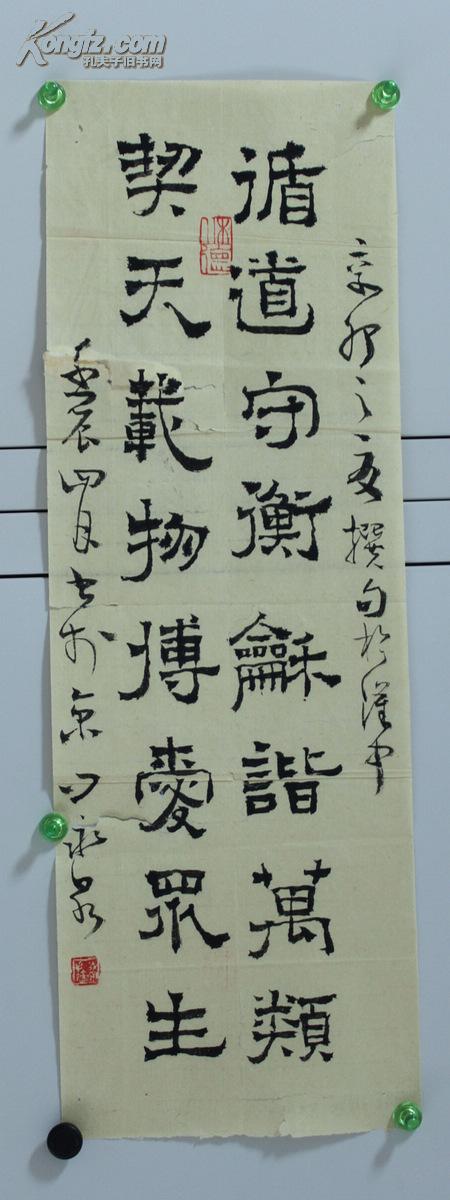 Kongfz.com
孔夫子旧书网
辛卯之夏撰句於漢中
循道守衡龢諧萬類
契天載物博愛眾生
壬辰四月書於京口永泉